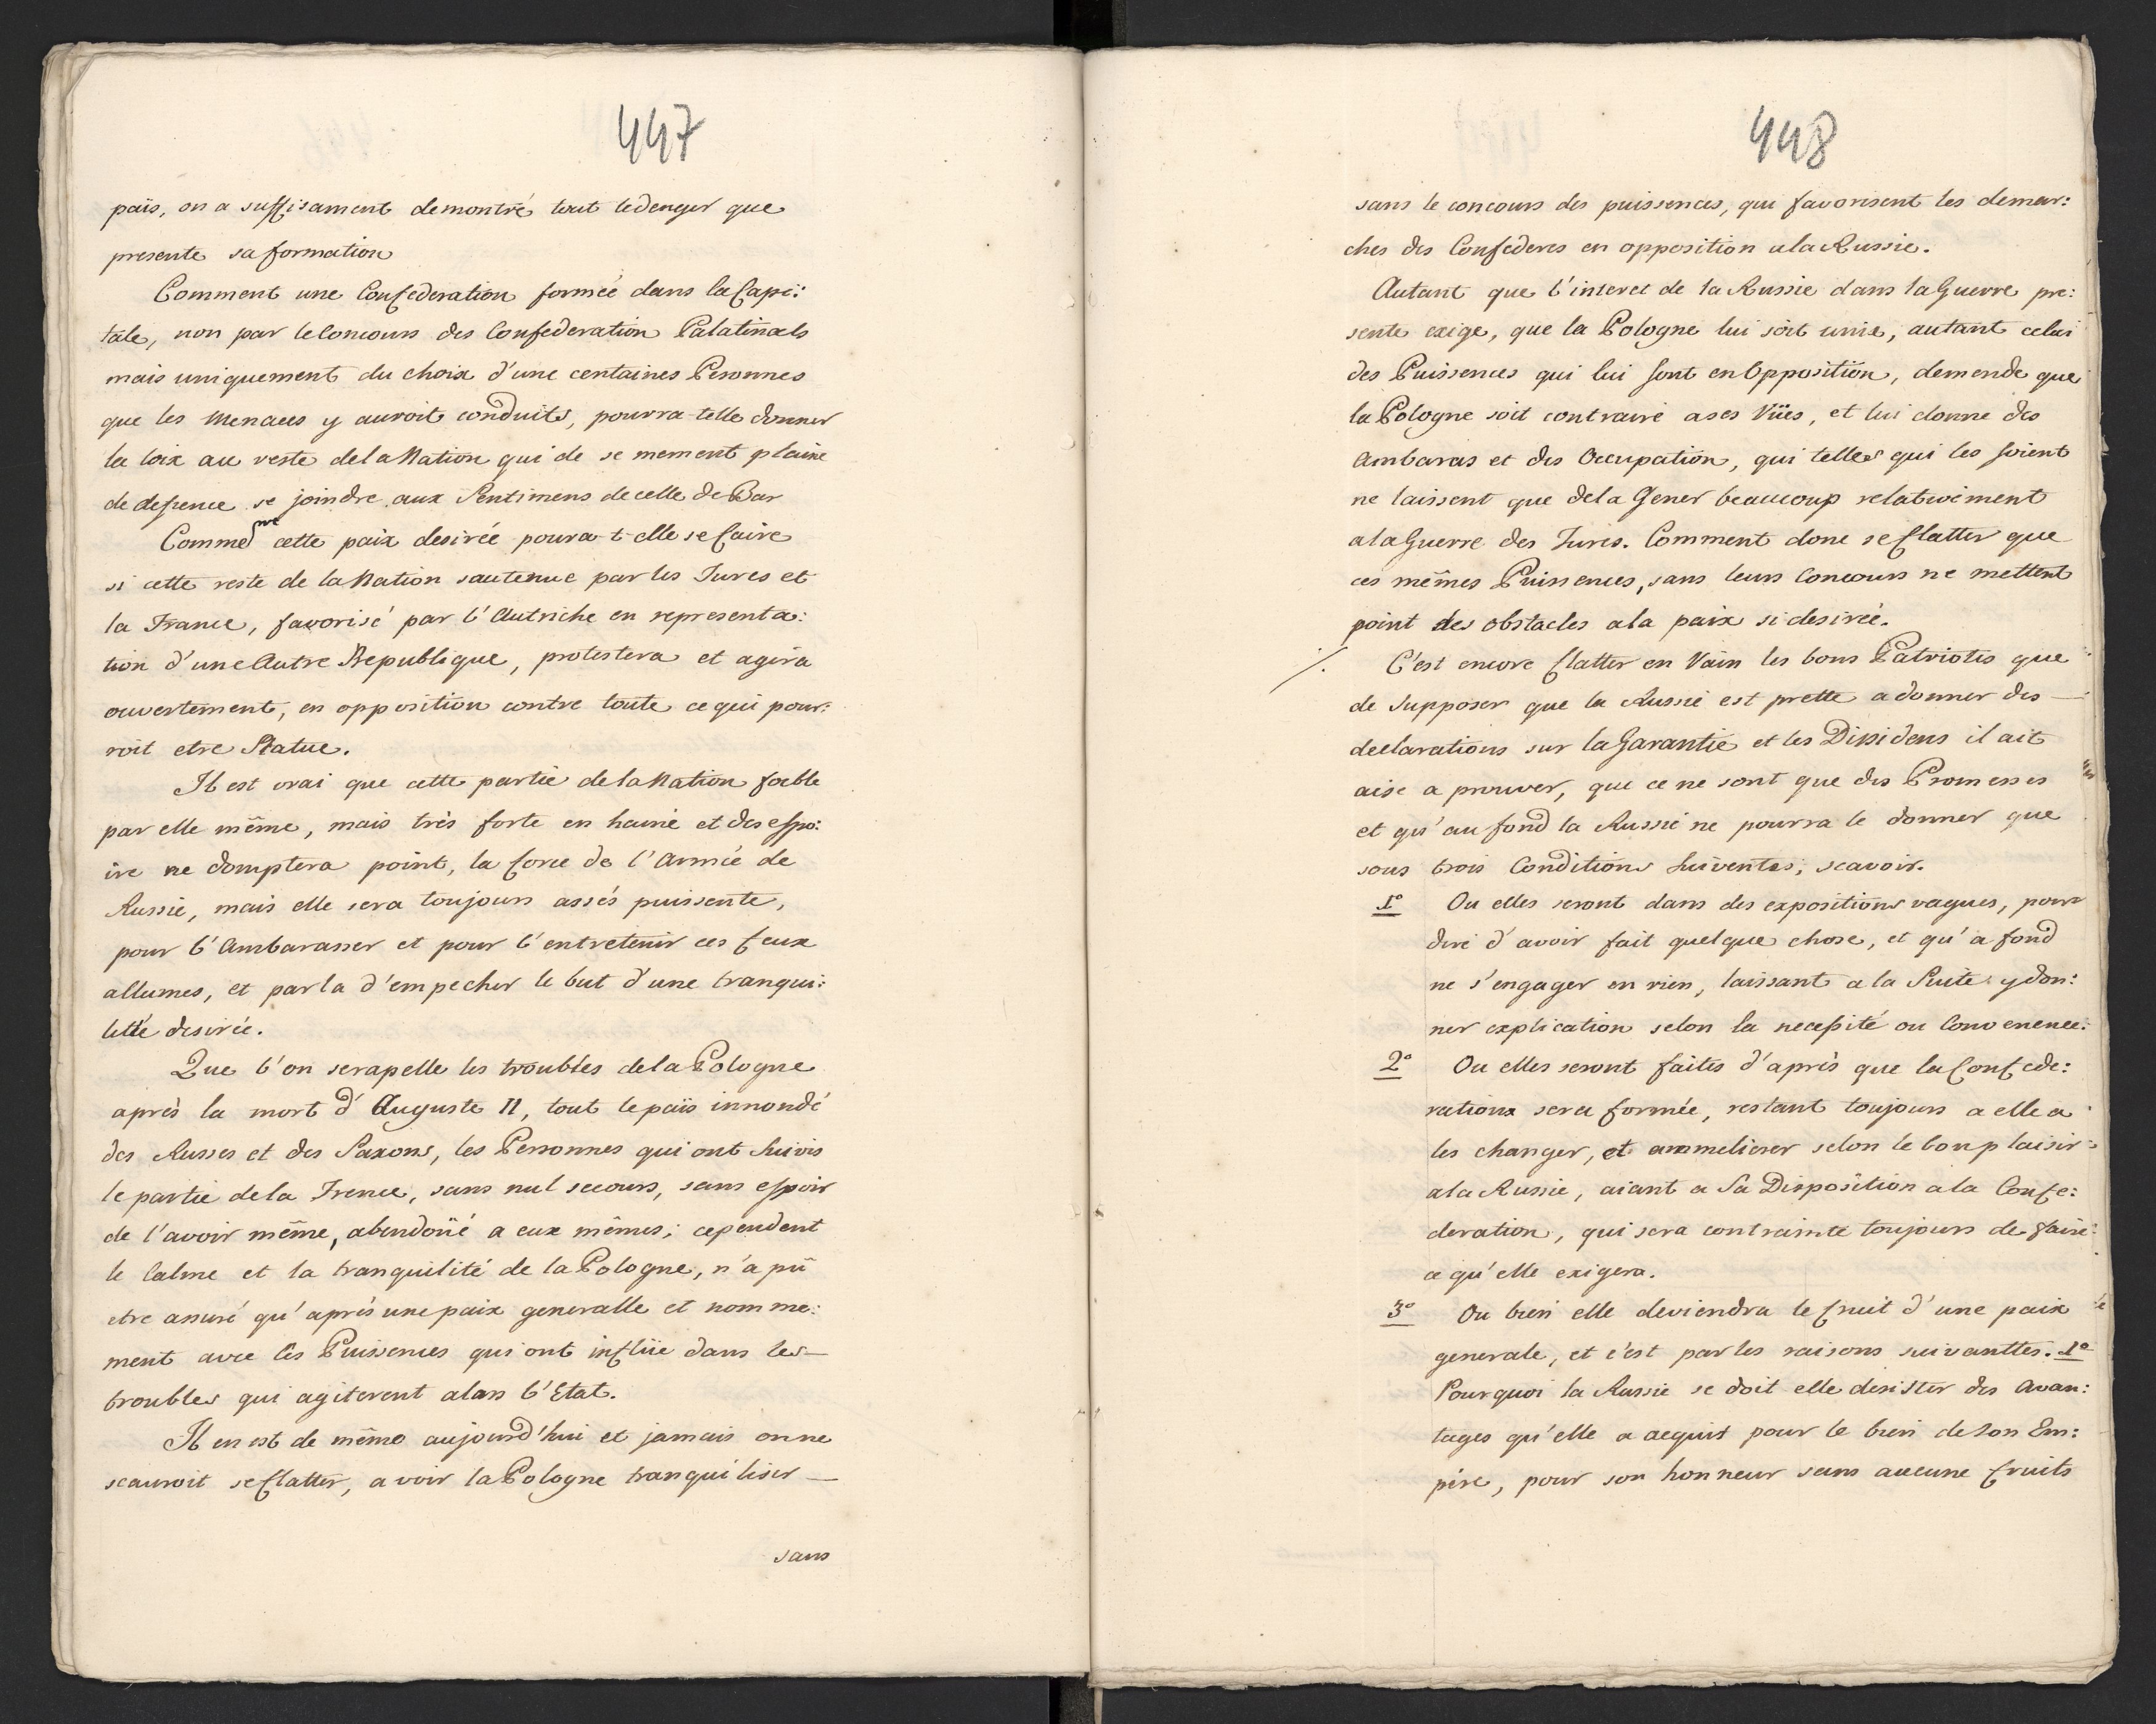 447
païs, on a suffisament demontré tout ledenger que
presente sa formation
Comment une Confederation formée dans la Capi:
tale, non par leConcours des Confederation Palatinals
mais uniquement du choix d'une centaines Personnes
que les Menaces y auroit conduits, pourra-telle donner
la loix au reste dela Nation qui de se mement plaine
de defence se joindre aux Sentimens de celle de Bar
Comment cette paix desirée poura-t-elle se faire
si cette reste de la Nation soutenue par les Turcs et
la France, favorisé par l'Autriche en representa:
tion d'une Autre Republique, protestera et agira
ouvertement, en opposition contre toute ce qui pour:
roit etre Statue.
Il est vrai que cette partie de la Nation foeble
par elle même, mais très forte en haine et desespo:
ire ne domptera point, la force de l'Armée de
Russie, mais elle sera toujours assés puissente,
pour l'Ambarasser et pour l'entretenir ces feux
allumes, et par la d'empecher le but d'une tranqui:
lité desirée.
Que l'on serapelle les troubles dela Pologne
après la mort d'Auguste II, tout le païs innondé
des Russes et des Saxons, les Personnes qui ont Suivis
le partie dela Frence, sans nul secours, sans espoir
de l'avoir même, abendoñé a eux mêmes; cependent
le Calme et la tranquilité de la Pologne, n'a pû
etre assuré qu'après une paix generalle et nomme:
ment avec les Puissences qui ont influe dans les—
troubles qui agiterent alors l'Etat.
Il en est de même aujourd'hui et jamais on ne
scauroit se flatter, a voir la Pologne tranquiliser—
sans
448
sans le concours des puissences, qui favorisent les demar:
ches des Confederes en opposition a la Russie.
Autant que l'interet de la Russie dans la Guerre pre:
sente exige, que la Pologne lui soit unie, autant celui
des Puissences qui lui sont en Opposition, demende que
la Pologne soit contraire a ses Vües, et lui donne des
Ambaras et des Occupation, qui telles qui les soient
ne laissent que dela Gener beaucoup relativement
a la Guerre des Turcs. Comment donc se flatter que
ces mêmes Puissences, sans leurs Concours ne mettent
point des obstacles a la paix si desirée.
C'est encore flatter en Vain les bons Patriotes que
de Supposer que la Russie est prette a donner des—
declarations sur la Garantie et les Dissidens il ait
aise a prouver, que ce ne sont que des Promesses
et qu'au fond la Russie ne pourra le donner que
sous trois Conditions Suiventes; scavoir.
1° Ou elles seront dans des expositions vagues, pour
dire d'avoir fait quelque chose, et qu'a fond
ne s'engager en rien, laissant a la Suite y don:
ner explication selon la necessité ou Convenence:
2° Ou elles seront faites d'après que la Confede:
rations sera formée, restant toujours a elle a
les changer, et ammelierer selon le bonplaisir
a la Russie, aiant a Sa Disposition a la Confe:
deration, qui sera contrainte toujours de faire
ce qu'elle exigera.
3° Ou bien elle deviendra le fruit d'une paix
generale, et c'est par les raisons suivanttes. 1°
Pourquoi la Russie se doit elle desister des Avan:
tages qu'elle a acquis pour le bien de Son Em:
pire, pour son honneur sans aucune fruits